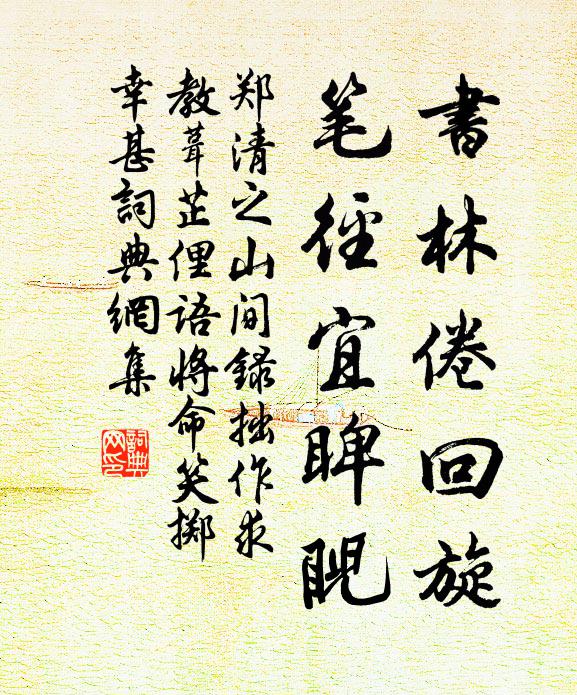 書林倦回旋
笔徑宜睥睨
郑清之山间録拙作求
教葺芷俚語将命笑擲
幸甚詞典網集
詞典
网印